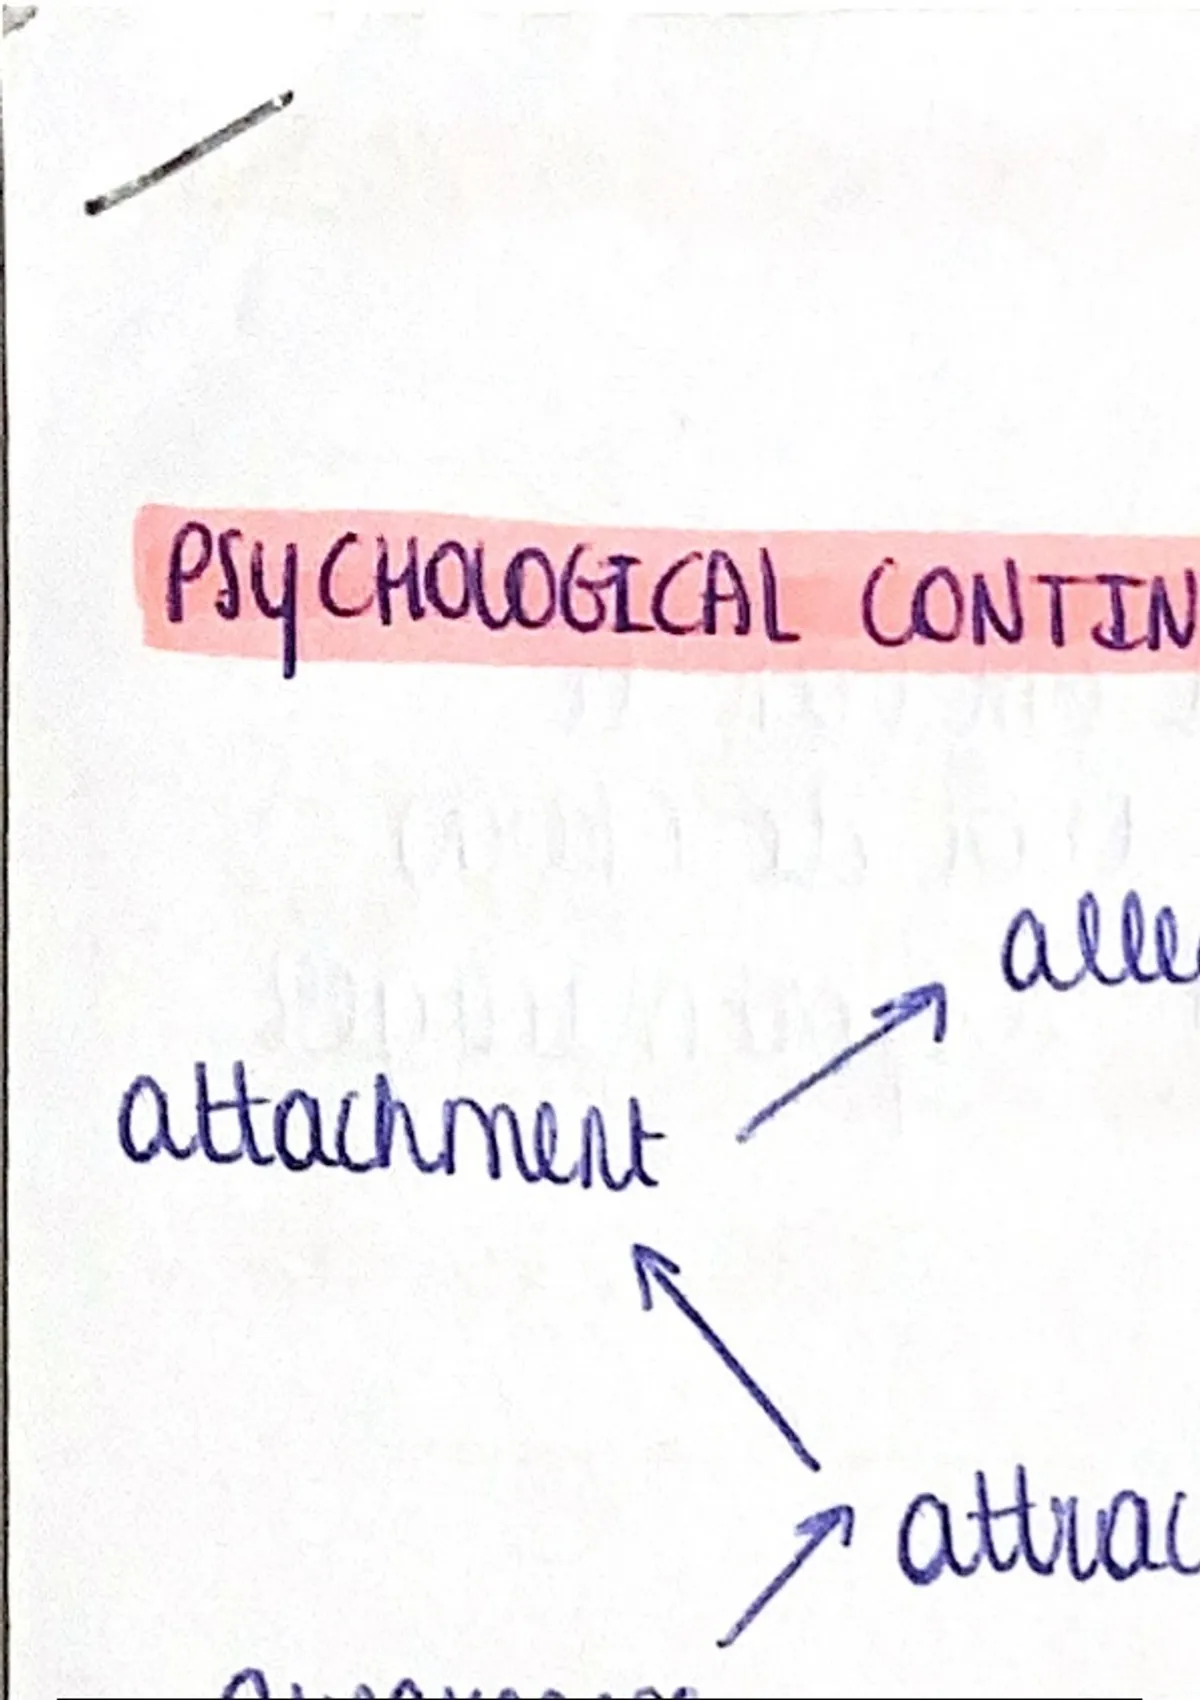 PSYCHOLOGICAL CONTIN
alle
attachment
attrac